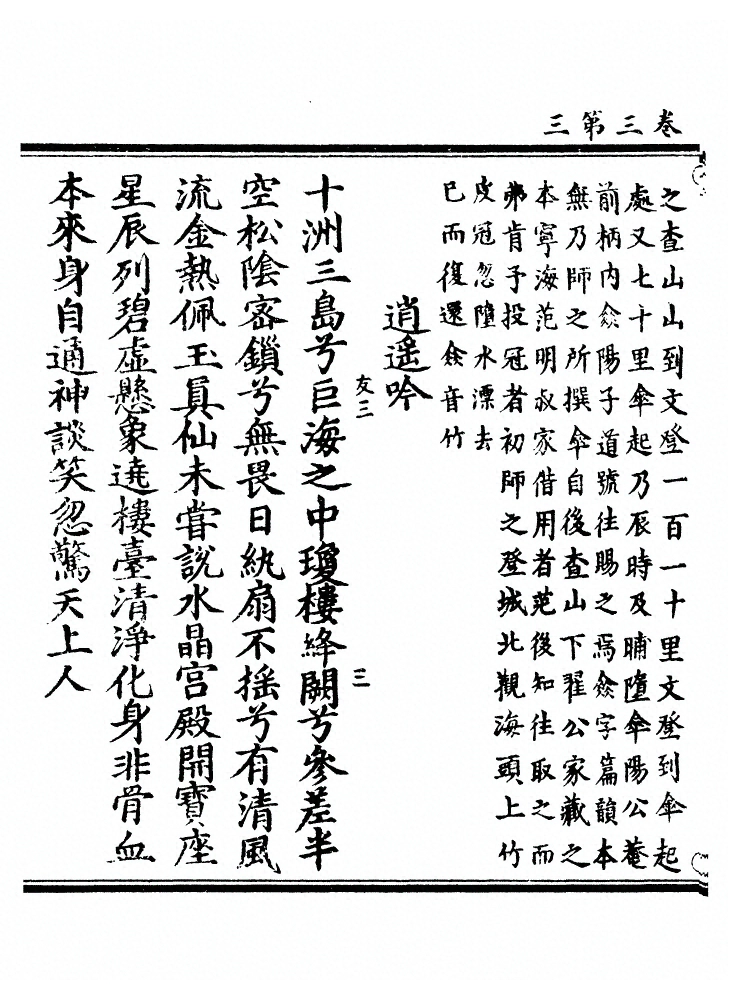 卷三第三
之查山山到文登一百一十里文登到傘起
處又七十里傘起乃辰時及晡墮傘陽公菴
前柄內㑒陽子道號往賜之焉㑒字篇韻本
無乃師之所撰傘自後查山下翟公家藏之
本寧海范明叔家借用者范後知往取之而
弗肯予投冠者初師之登城北觀海頭上竹
皮冠忽墮水漂去
已而復還㑒音竹
逍遥吟
友三
三
十洲三島兮巨海之中瓊樓絳闕兮參差半
空松陰密鎖兮無畏日紈扇不揺兮有清風
流金熱佩玉眞仙未嘗説水晶宫殿開寶座
星辰列碧虛懸象遶樓臺清淨化身非骨血
本來身自通神談笑忽驚天上人